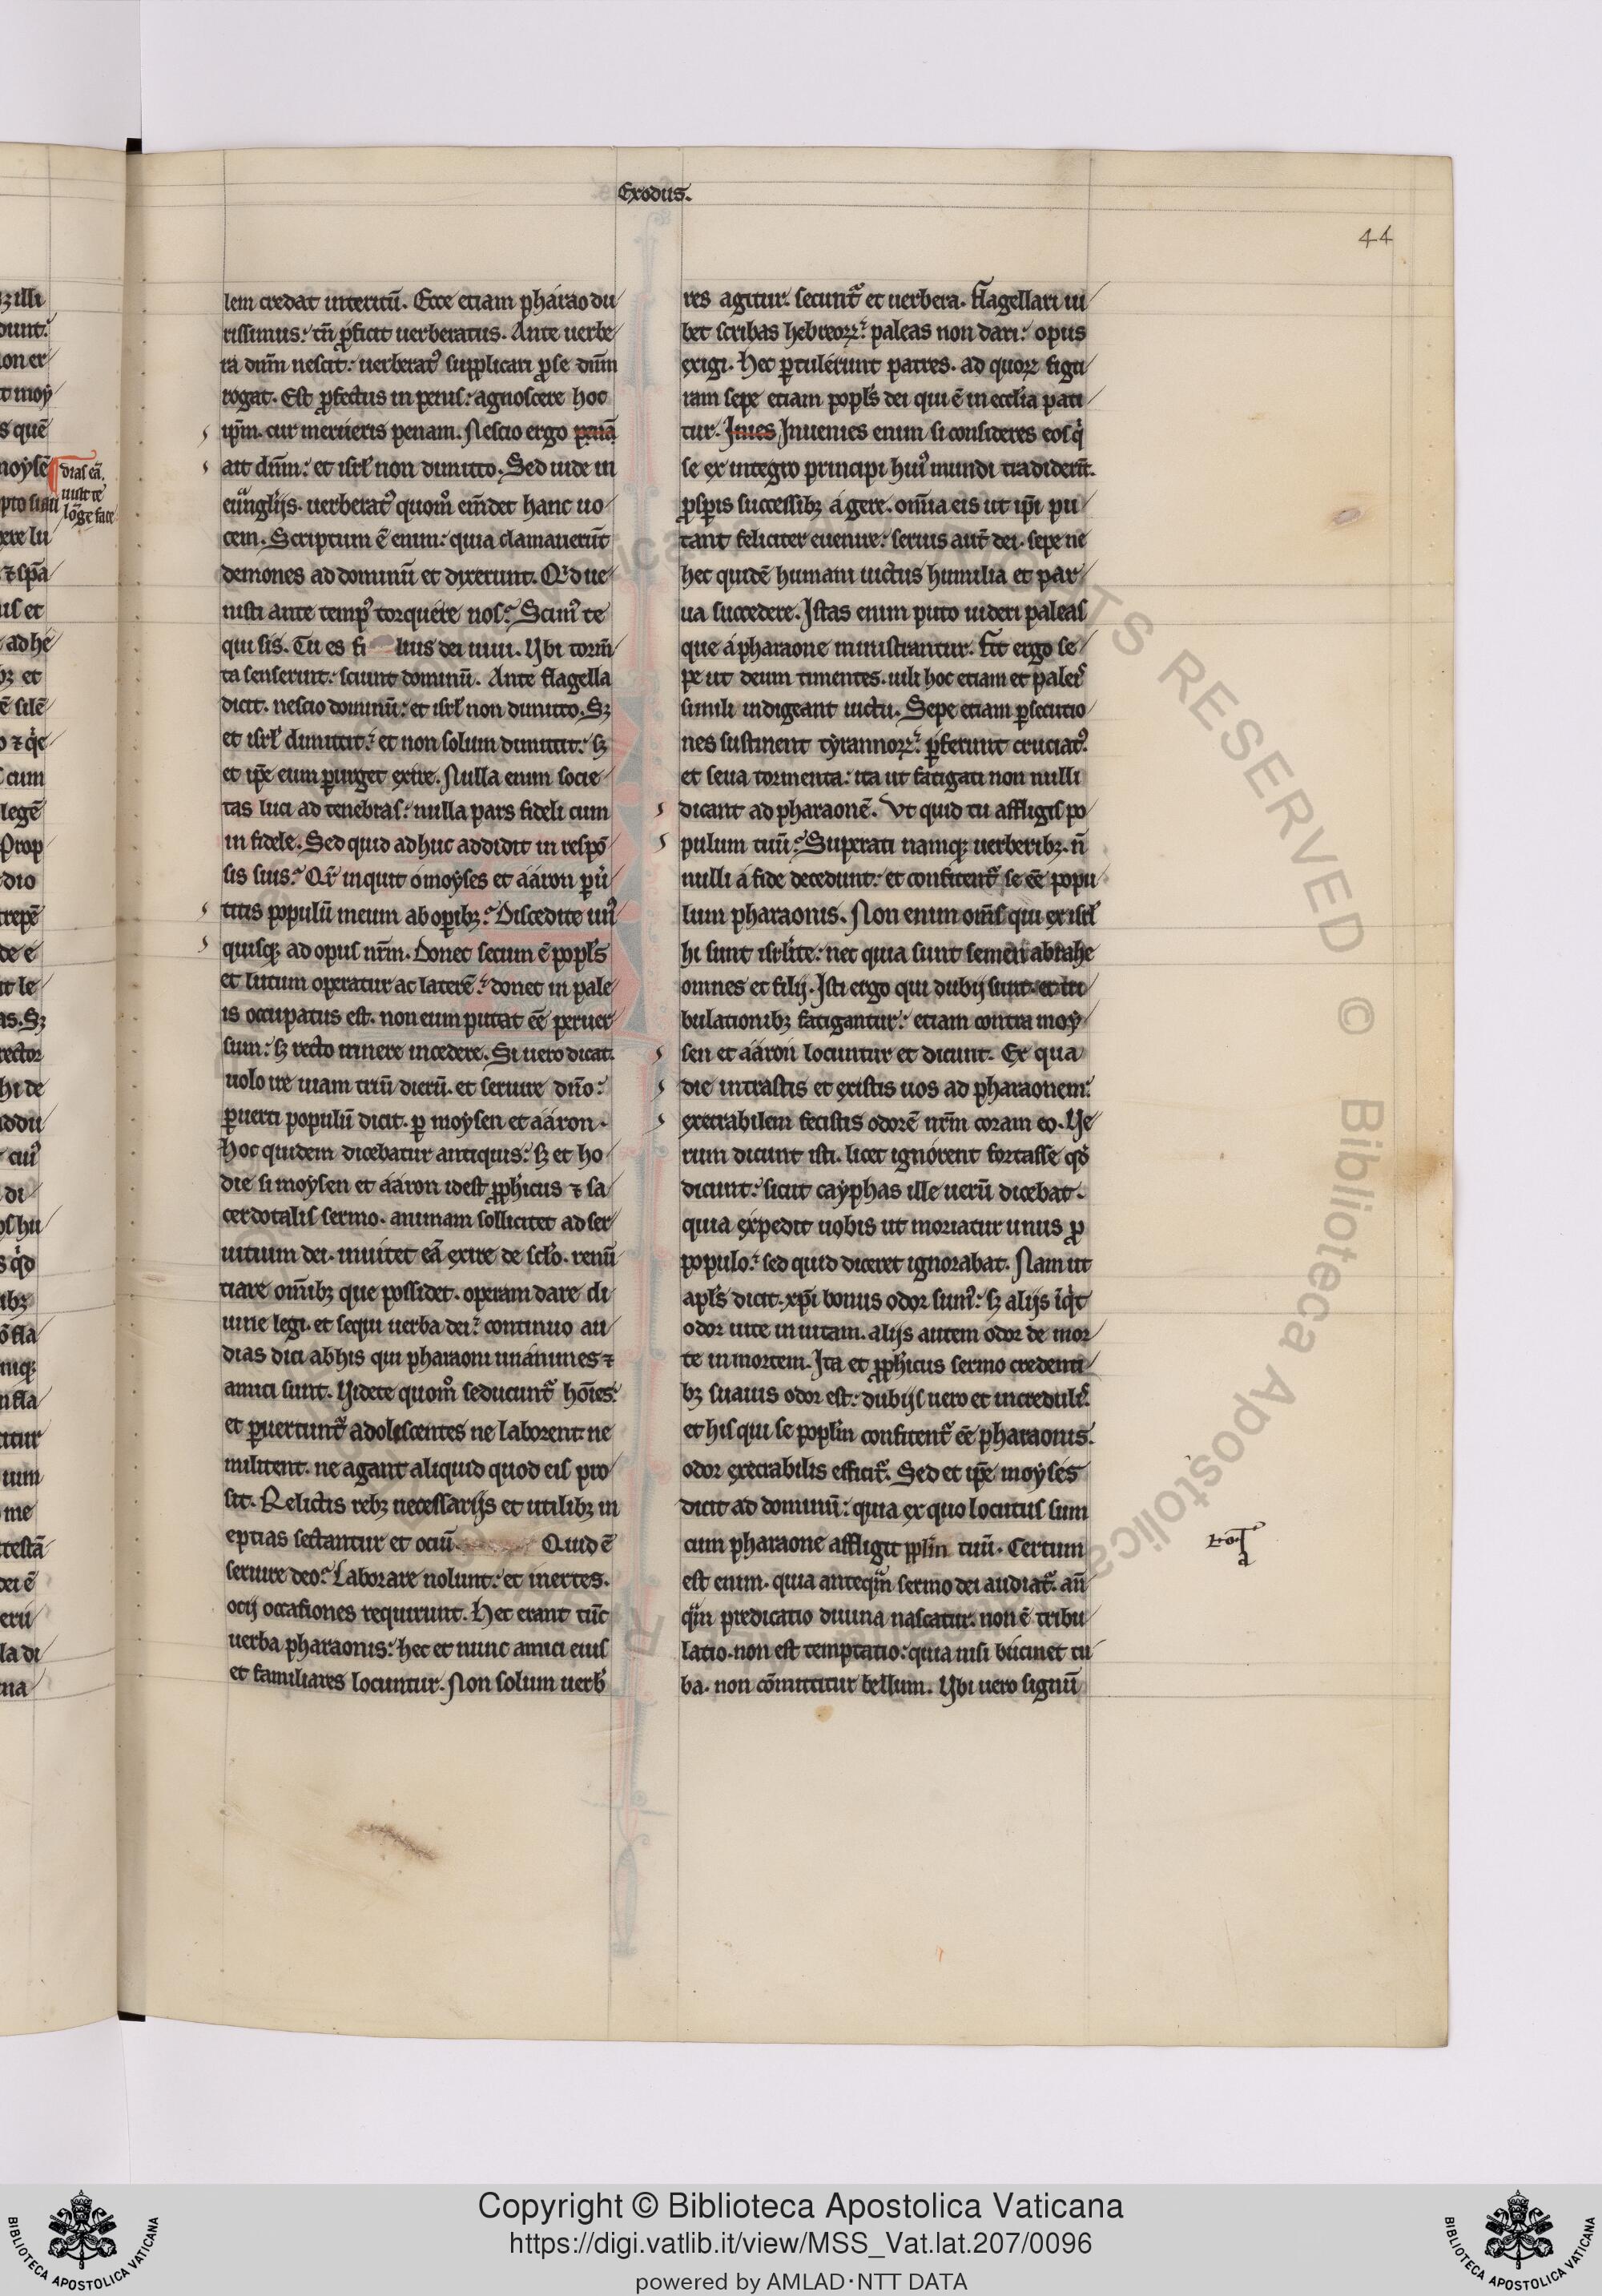 Exodus.
44
lem credat interitū. Ecce etiam pharao du
rissimus: tn̄ ꝓficit uerberatus. Ante uerbe
ra dn̄m nescit: uerberatꝰ supplicari ꝓ se dn̄m
rogat. Est ꝓfectus in penis: agnoscere hoc
ip̄m. cur merueris penam. Nescio ergo penā
ait dn̄m: et isrł non dimitto. Sed uide in
euͣnglijs. uerberatꝰ quom̊ em̄det hanc uo
cem. Scriptum ē enim: quia clamauerūt
demones ad dominū et dixerunt. Qͥd ue
nisti ante tempꝰ torquere nos? Scimꝰ te
qui sis. Tu es fi lius dei uiui. Ybi torm̄
ta senserunt: sciunt dominū. Ante flagella
dicit. nescio dominū: et isrł non dimitto. Sꝫ
et isrł dimittit: et non solum dimittit: sꝫ
et ip̄e eum ꝑurget exire. Nulla enim socie
tas luci ad tenebras: nulla pars fideli cum
in fidele. Sed quid adhuc addidit in respō
sis suis? Qr̄ inquit o moyses et aaron ꝑuͥ
titis populū meum ab oꝑibꝫ? Discedite unꝰ
quisqꝫ ad opus nr̄m. Donec secum ē popl̄s
et lutum operatur ac laterē: donec in pale
is occupatus est. non eum putat eē peruer
sum: sꝫ recto itinere incedere. Si uero dicat.
uolo ire uiam triū dierū. et seruire dn̄o:
ꝑuerti populū dicit. ꝑ moysen et aaron.
Hoc quidem dicebatur antiquis: sꝫ et ho
die si moysen et aaron idest ꝓph̄icus ⁊ sa
cerdotalis sermo. animam sollicitet ad ser
uitium dei. inuitet eā exire de scl̄o. renū
tiare om̄ibꝫ que possidet. operam dare di
uine legi. et sequi uerba dei: continuo au
dias dici ab his qui pharaoni unanimes ⁊
amici sunt. Videte quom̊ seducunt᷑ hoīes:
et ꝑuertunt᷑ adolescentes ne laborent ne
militent. ne agant aliquid quod eis pro
sit. Relictis rebꝫ necessarijs et utilibꝫ in
eptias sectantur et ociū. Quid ē
seruire deo? Laborare nolunt: et inertes.
ocij occasiones requirunt. Hec erant tūc
uerba pharaonis: hec et nunc amici eius
et familiares locuntur. Non solum uerb̄
res agitur. secunt᷑ et uerbera. Flagellari iu
bet scribas hebreoꝝ: paleas non dari: opus
exigi. Hec ꝑtulerunt patres. ad quoꝝ figu
ram sepe etiam popl̄s dei qui ē in eccl̄ia pati
tur. Inues Inuenies enim si consideres eos qͥ
se ex integro principi huiꝰ mundi tradiderūt.
ꝓsꝑis successibꝫ agere. om̄ia eis ut ip̄i pu
tant feliciter euenire: seruis aut̄ dei. sepe ne
hec quidē humani uictus humilia et par
ua succedere. Istas enim puto uideri paleas
que a pharaone ministrantur. Fit ergo se
pe ut deum timentes. uili hoc etiam et paleis
simili indigeant uictu. Sepe etiam ꝑsecutio
nes sustinent tyrannoꝝ: ꝑferunt cruciatꝰ
et seua tormenta: ita ut fatigati non nulli
dicant ad pharaonē. Vt quid tu affligis po
pulum tuū? Superati namqꝫ uerberibꝫ. n̄
nulli a fide decedunt: et confitent᷑ se eē popu
lum pharaonis. Non enim om̄s qui ex isrł
hi sunt isrl̄ite: nec quia sunt semen abrahe
omnes et filij. Isti ergo qui dubij sunt. et tri
bulationibꝫ fatigantur: etiam contra moy
sen et aaron locuntur et dicunt. Ex qua
die intrastis et existis uos ad pharaonem:
execrabilem fecistis odorē nr̄m coram eo. Ve
rum dicunt isti. licet ignorent fortasse qd̄
dicunt: sicut cayphas ille uerū dicebat.
quia expedit uobis ut moriatur unus ꝓ
populo: sed quid diceret ignorabat. Nam ut
apl̄s dicit. xp̄i bonus odor sumꝰ: sꝫ alijs īqͥt
odor uite in uitam. alijs autem odor de mor
te in mortem. Ita et ꝓph̄icus sermo credenti
bꝫ suauis odor est: dubijs uero et incredulis
et his qui se popl̄m confitent᷑ eē pharaonis.
odor execrabilis efficit᷑. Sed et ip̄e moyses
dicit ad dominū: quia ex quo locutus sum
cum pharaone affligit ppl̄m tuū. Certum
est enim. quia anteqͣm sermo dei audiat᷑. an̄
qͣm predicatio diuina nascatur. non ē tribu
latio. non est temptatio: quia nisi bucinet tu
ba. non cōmittitur bellum. Ybi uero signū
Copyright © Biblioteca Apostolica Vaticana
https://digi.vatlib.it/view/MSS_Vat.lat.207/0096
powered by AMLAD·NTT DATA